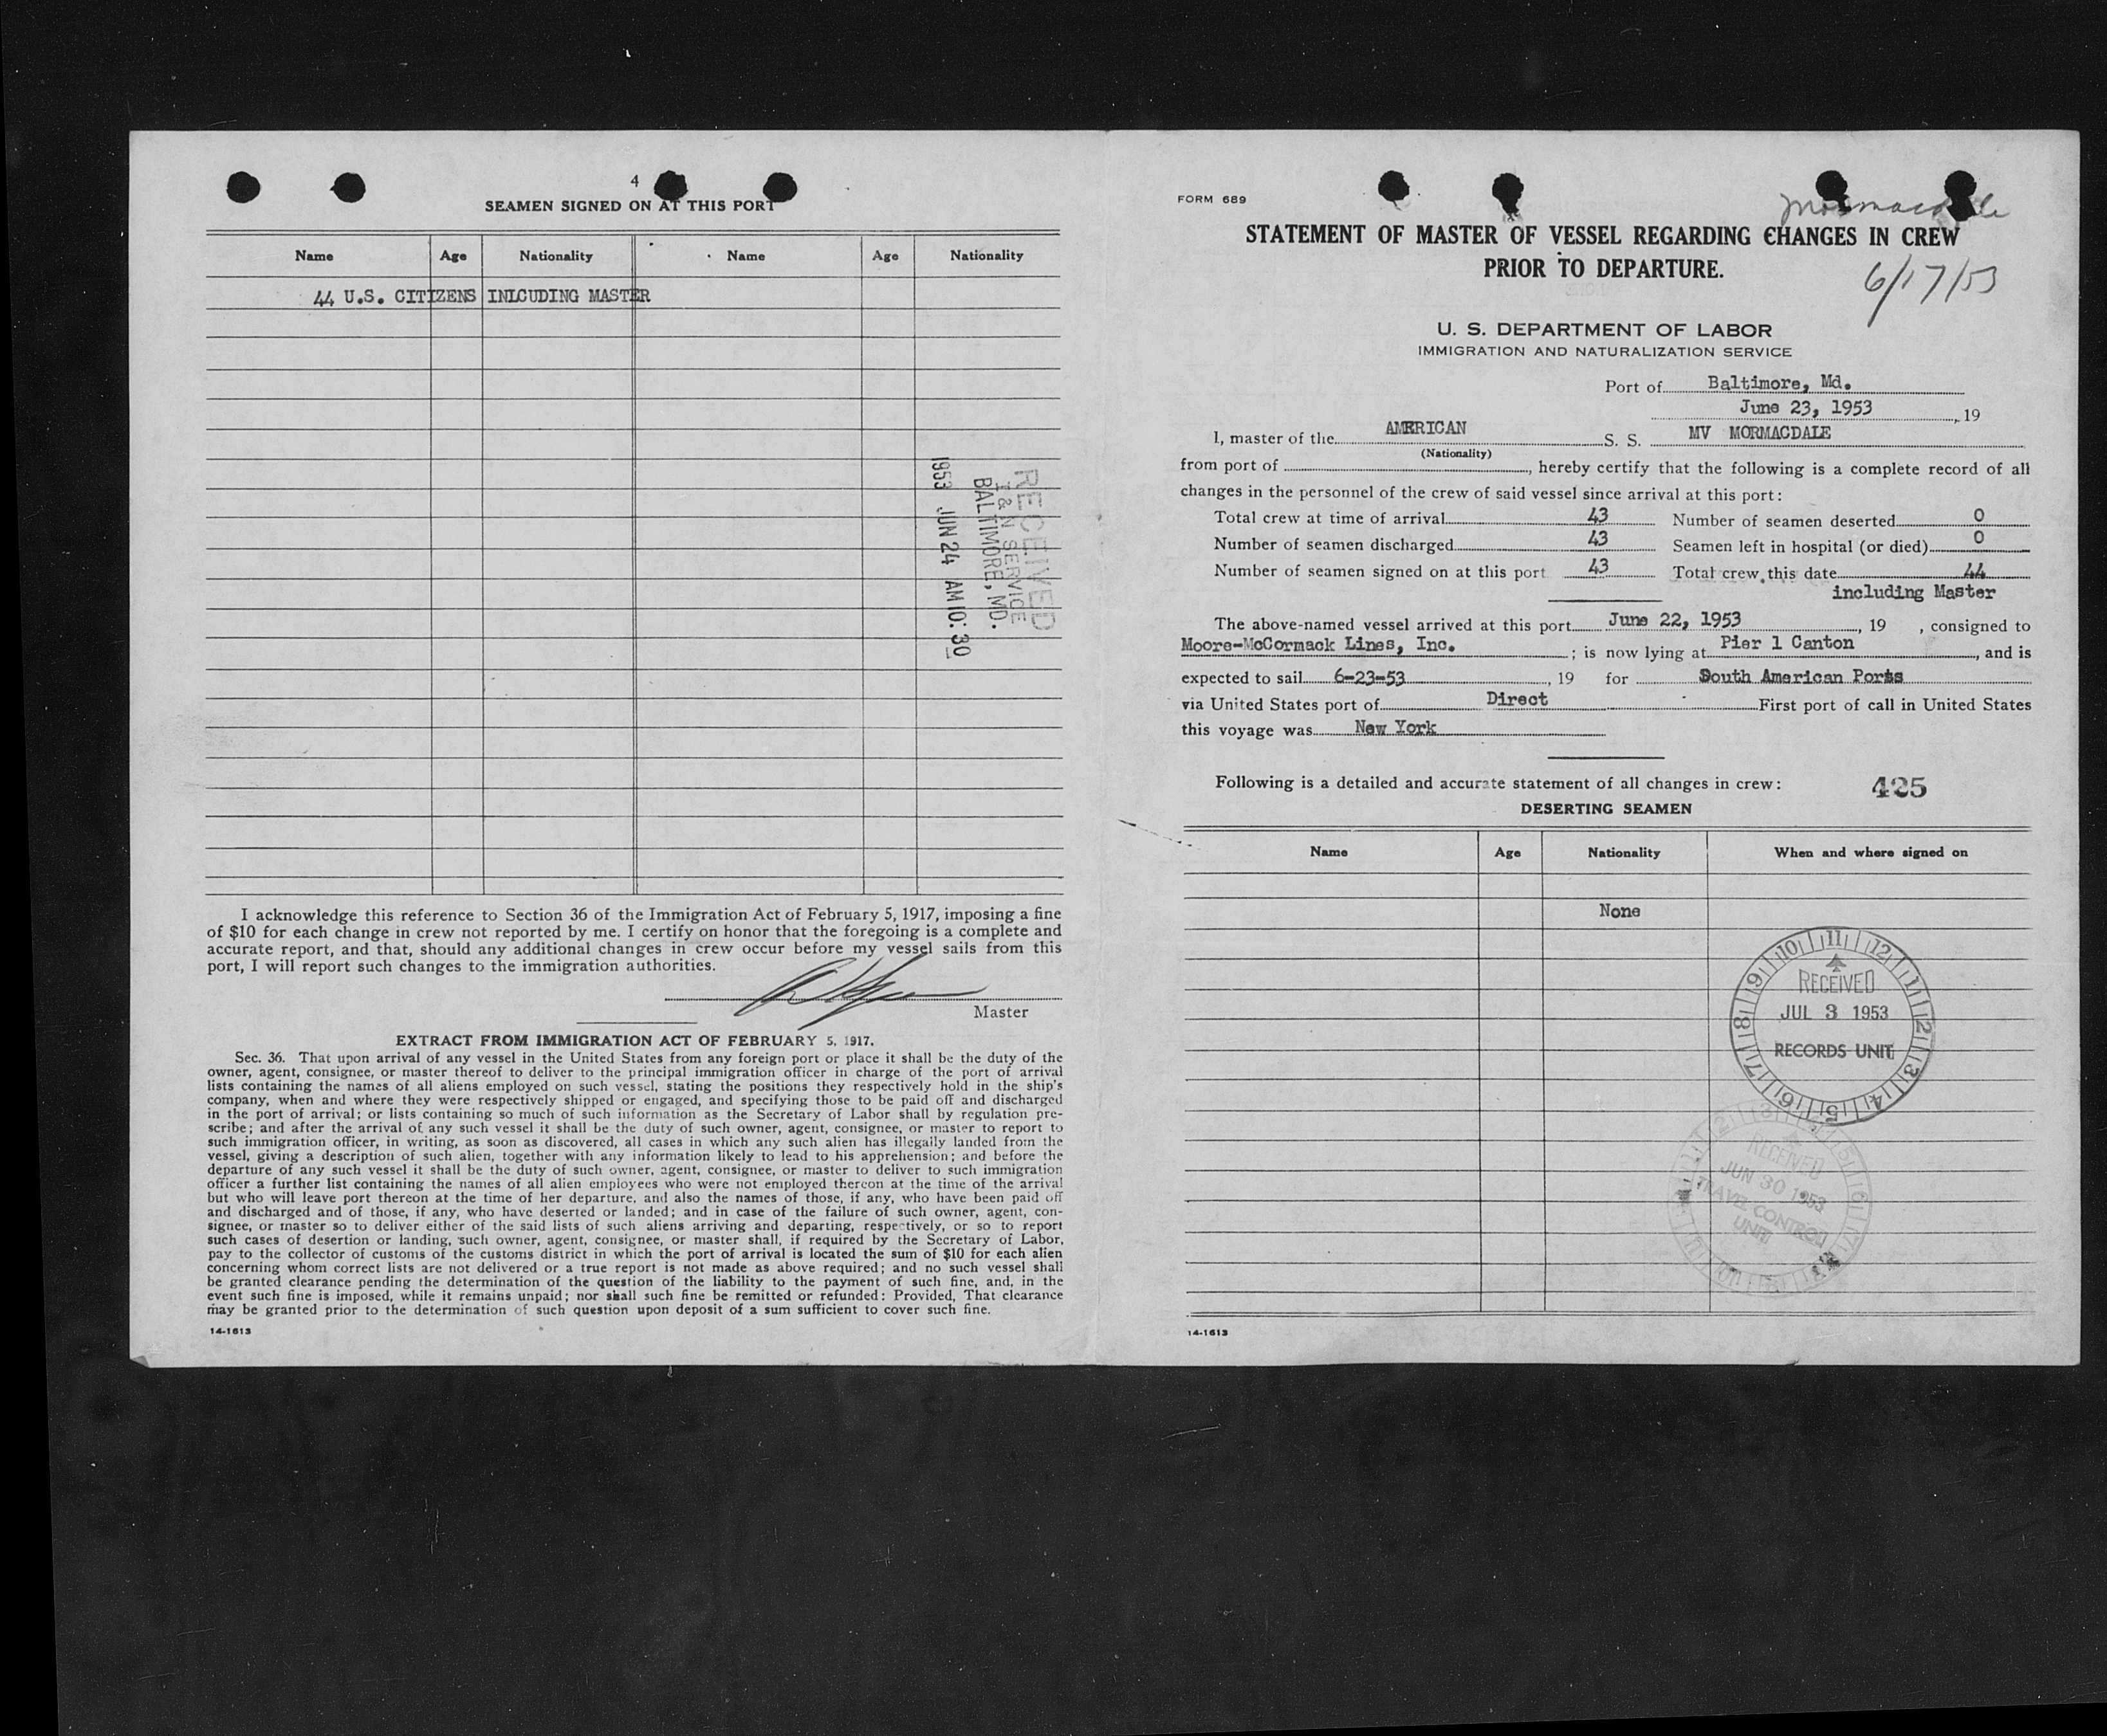 4
SEAMEN SIGNED ON AT THIS PORT
Name Age Nationality Name Age Nationality
44 U.S. CITIZENS INLCUDING MASTER
RECEIVED
I & N SERVICE
BALTIMORE, MD.
1953 JUN 24 AM 10:30
I acknowledge this reference to Section 36 of the Immigration Act of February 5, 1917, imposing a fine
of $10 for each change in crew not reported by me. I certify on honor that the foregoing is a complete and
accurate report, and that, should any additional changes in crew occur before my vessel sails from this
port, I will report such changes to the immigration authorities.
Master
EXTRACT FROM IMMIGRATION ACT OF FEBRUARY 5, 1917.
Sec. 36. That upon arrival of any vessel in the United States from any foreign port or place it shall be the duty of the
owner, agent, consignee, or master thereof to deliver to the principal immigration officer in charge of the port of arrival
lists containing the names of all aliens employed on such vessel, stating the positions they respectively hold in the ship's
company, when and where they were respectively shipped or engaged, and specifying those to be paid off and discharged
in the port of arrival; or lists containing so much of such information as the Secretary of Labor shall by regulation pre-
scribe; and after the arrival of any such vessel it shall be the duty of such owner, agent, consignee, or master to report to
such immigration officer, in writing, as soon as discovered, all cases in which any such alien has illegally landed from the
vessel, giving a description of such alien, together with any information likely to lead to his apprehension; and before the
departure of any such vessel it shall be the duty of such owner, agent, consignee, or master to deliver to such immigration
officer a further list containing the names of all alien employees who were not employed thereon at the time of the arrival
but who will leave port thereon at the time of her departure, and also the names of those, if any, who have been paid off
and discharged and of those, if any, who have deserted or landed; and in case of the failure of such owner, agent, con-
signee, or master so to deliver either of the said lists of such aliens arriving and departing, respectively, or so to report
such cases of desertion or landing, such owner, agent, consignee, or master shall, if required by the Secretary of Labor,
pay to the collector of customs of the customs district in which the port of arrival is located the sum of $10 for each alien
concerning whom correct lists are not delivered or a true report is not made as above required; and no such vessel shall
be granted clearance pending the determination of the question of the liability to the payment of such fine, and, in the
event such fine is imposed, while it remains unpaid; nor shall such fine be remitted or refunded: Provided, That clearance
may be granted prior to the determination of such question upon deposit of a sum sufficient to cover such fine.
14-1613
FORM 689
Mormacdale
STATEMENT OF MASTER OF VESSEL REGARDING CHANGES IN CREW
PRIOR TO DEPARTURE.
6/17/53
U. S. DEPARTMENT OF LABOR
IMMIGRATION AND NATURALIZATION SERVICE
Port of Baltimore, Md.
June 23, 1953, 19
I, master of the AMERICAN S. S. MV MORMACDALE
(Nationality)
from port of , hereby certify that the following is a complete record of all
changes in the personnel of the crew of said vessel since arrival at this port:
Total crew at time of arrival 43 Number of seamen deserted 0
Number of seamen discharged 43 Seamen left in hospital (or died) 0
Number of seamen signed on at this port 43 Total crew this date 44
including Master
The above-named vessel arrived at this port June 22, 1953, 19 , consigned to
Moore-McCormack Lines, Inc. ; is now lying at Pier 1 Canton, and is
expected to sail 6-23-53, 19 for South American Ports
via United States port of Direct First port of call in United States
this voyage was New York
Following is a detailed and accurate statement of all changes in crew: 425
DESERTING SEAMEN
Name Age Nationality When and where signed on
None
10 11 12 1 2 3 4 5 6 7 8 9
RECEIVED
JUL 3 1953
RECORDS UNIT
RECEIVED
JUN 30 1953
TRAVEL CONTROL
UNIT
14-1613